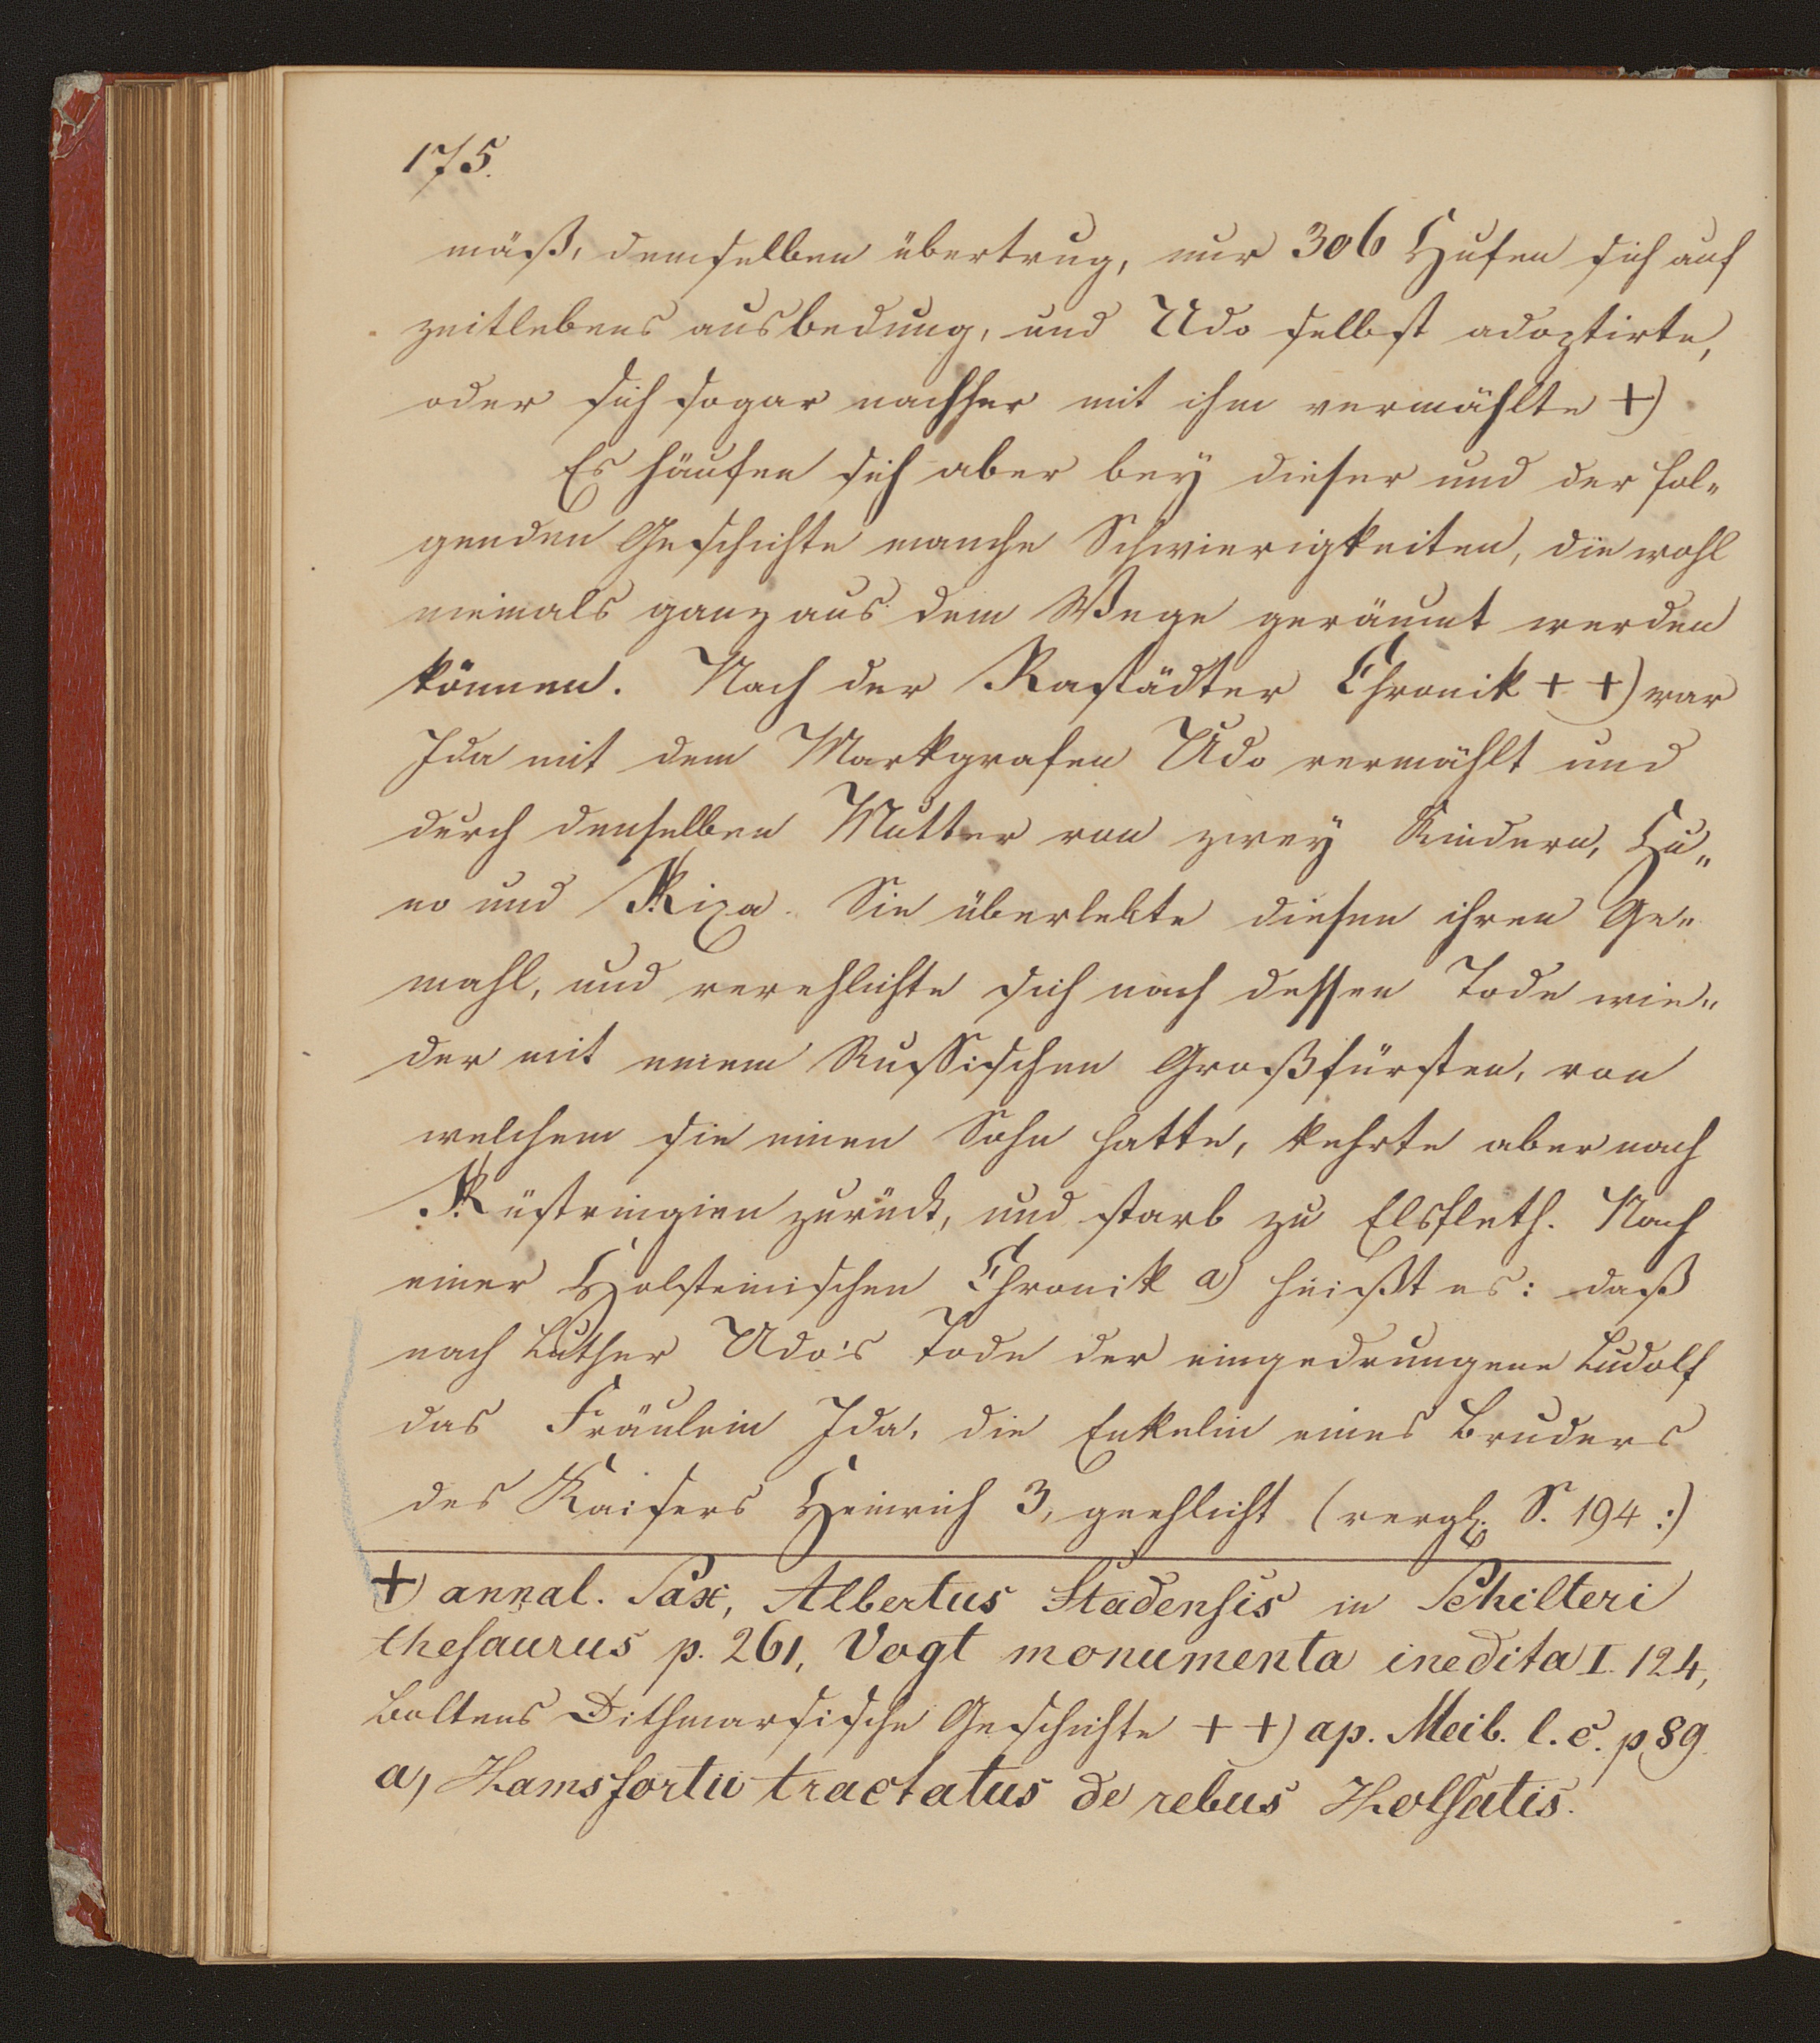 175.
mäß, demselben übertrug, nur 306 Hufen sich auf
zeitlebens ausbedung, und Udo selbst adoptirte,
oder sich sogar nachher mit ihm vermählte +)
Es häufen sich aber bey dieser und der fol„
genden Geschichte manche Schwierigkeiten, die wohl
niemals ganz aus dem Wege geräumt werden
können. Nach der Rastädter Chronik ++) war
Ida mit dem Markgrafen Udo vermählt und
durch denselben Mutter von zwey Kindern, Hu„
no und Rixa. Sie überlebte diesen ihren Ge„
mahl, und verehlichte sich nach dessen Tode wie„
der mit einem Russischen Großfürsten, von
welchem sie einen Sohn hatte, kehrte aber nach
Rüstringien zurück, und starb zu Elsfleth. Nach
einer Holsteinischen Chronik a) heißt es: daß
nach Luther Udo's Tode der eingedrungene Ludolf
das Fräulein Ida, die Enkelin eines Bruders
des Kaisers Heinrich 3, geehlicht (vergl. S. 194 :)
+) annal. Sax, Albertus Stadensis in Schilteri
thesaurus p. 261, Vogt monumenta inedita I. 124,
Boltens Dithmarsische Geschichte ++) ap. Meib. l. c. p 89.
a) Hamsfortii tractatus de rebus Holsatis.